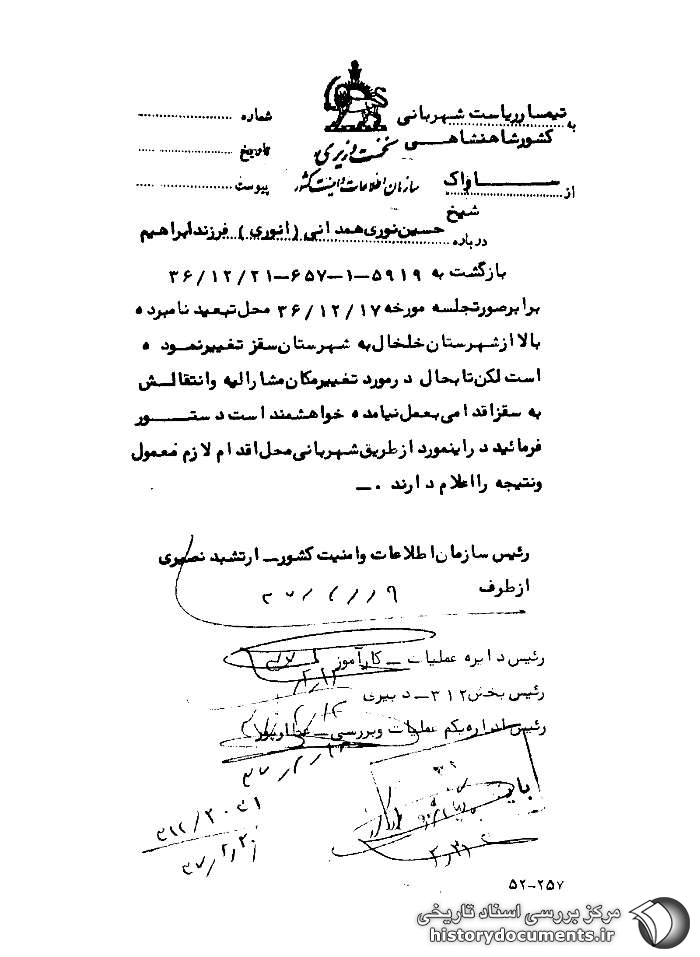 به تیمسار ریاست شهربانی
کشور شاهنشاهی
نخست وزیری
سازمان اطلاعات و امنیت کشور
شماره
تاریخ
پیوست
از ســــاواک
شیخ
درباره حسین نوری همدانی (انوری) فرزند ابراهیم
بازگشت به ۵۹۱۹-۱-۶۵۷-۳۶/۱۲/۲۱
برابر صورتجلسه مورخه ۳۶/۱۲/۱۷ محل تبعید نامبرده
بالا از شهرستان خلخال به شهرستان سقز تغییر نموده
است لکن تابحال در مورد تغییر مکان مشارالیه و انتقالش
به سقز اقدامی بعمل نیامده خواهشمند است دستـــور
فرمائید در اینمورد از طریق شهربانی محل اقدام لازم معمول
و نتیجه را اعلام دارند .ـ
رئیس سازمان اطلاعات وامنیت کشور ـ ارتشبد نصیری
از طرف
رئیس دایره عملیات ـ کارآموز
رئیس بخش ۳۱۲ ـ دبیری
رئیس اداره یکم عملیات وبررسی ـ عطارپور
۵۲-۲۵۷
مرکز بررسی اسناد تاریخی
historydocuments.ir